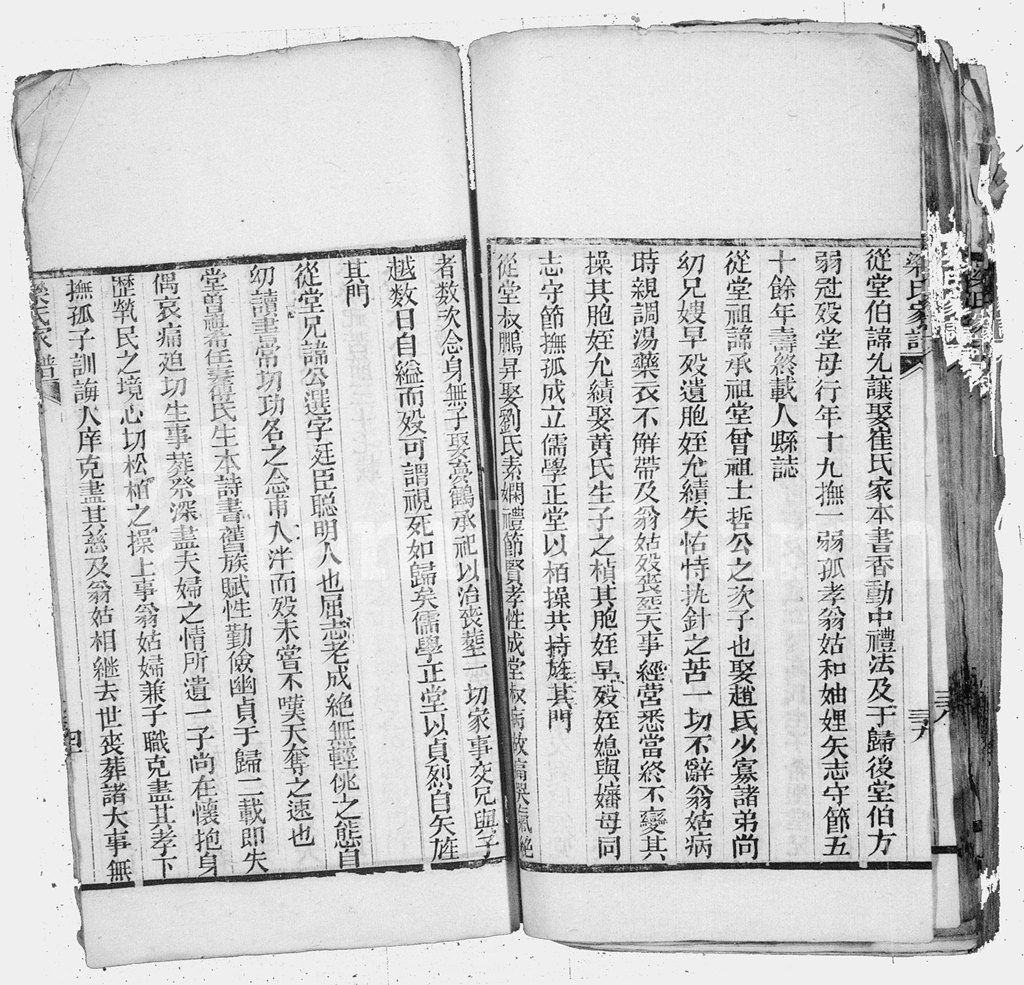 氏家譜
三九
從堂伯諱允讓娶崔氏家本書香動中禮法及于歸後堂伯方
弱冠歿堂母行年十九撫一弱孤孝翁姑和妯娌矢志守節五
十餘年壽終載入縣誌
從堂祖諱承祖堂曾祖士哲公之次子也娶趙氏少寡諸弟尚
幼兄嫂早歿遺胞姪允績失怙恃挑針之苦一切不辭翁姑病
時親調湯藥衣不解帶及翁姑歿喪葬大事經營悉當終不變其
操其胞姪允績娶黄氏生子之楨其胞姪早歿姪媳與嬸母同
志守節撫孤成立儒學正堂以栢操共持旌其門
從堂叔鵬昇娶劉氏素嫻禮節賢孝性成堂叔病故痛哭氣絶
者数次念身無子娶鶴承祀以治喪葬一切家事交兄與子
越数日自縊而殁可謂視死如歸矣儒學正堂以貞烈自矢旌
其門
從堂兄諱公選字廷臣聡明人也屈志老成絶無輕佻之態自
幼讀書常切功名之念甫入泮而殁未嘗不嘆天奪之速也
堂曽祖希任妻喬氏生本詩書舊族賦性勤儉幽貞于歸二載即失
偶哀痛廹切生事葬祭深盡夫婦之情所遺一子尚在懷抱身
歴煢民之境心切松栢之操上事翁姑婦兼子職克盡其孝下
撫孤子訓誨人庠克盡其慈及翁姑相継去世喪葬諸大事無
氏家譜